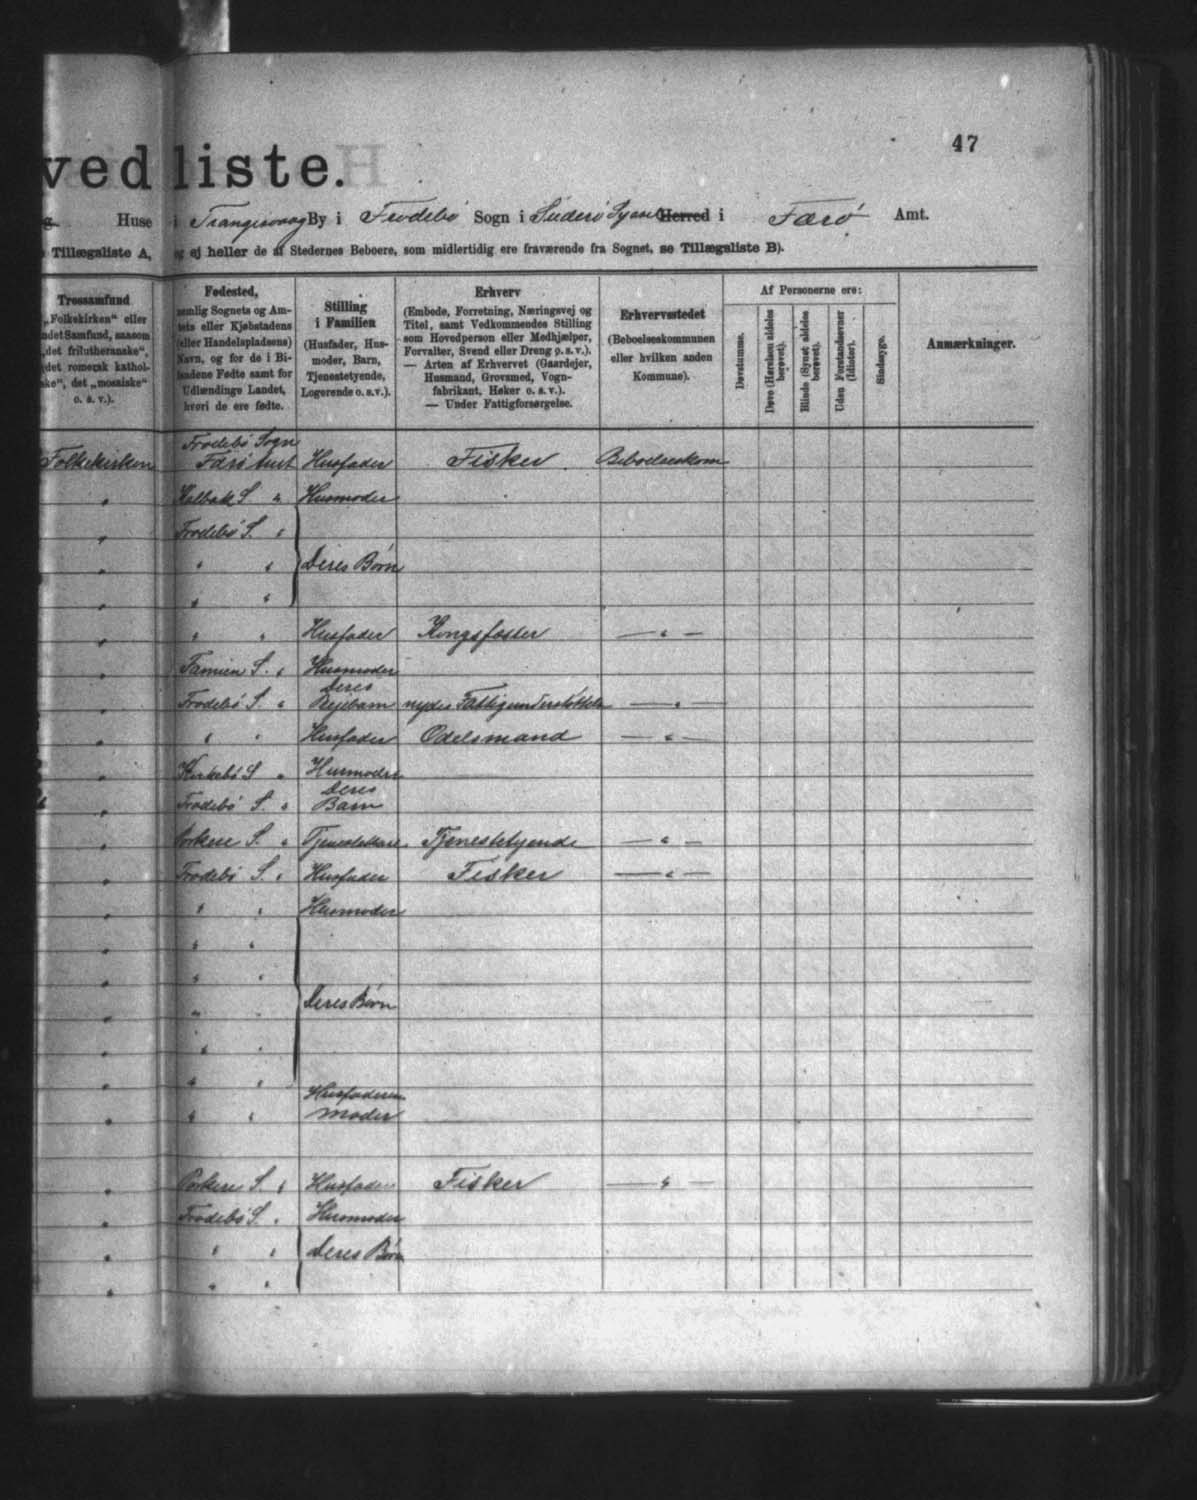 47
ved liste.
Huse i Trangisvaag By i Frodebø Sogn i Suderø Syssel Herred i Færø Amt.
Tillægsliste A, og ej heller de af Stedernes Beboere, som midlertidig ere fraværende fra Sognet, se Tillægsliste B).
Trossamfund
„Folkekirken“ eller
andet Samfund, saasom
„det frilutheranske“,
det romersk kathol-
ske“, det „mosaiske“
o. s. v.).
Fødested,
nemlig Sognets og Am-
tets eller Kjøbstadens
(eller Handelspladsens)
Navn, og for de i Bi-
landene Fødte samt for
Udlændinge Landet,
hvori de ere fødte.
Stilling
i Familien
(Husfader, Hus-
moder, Barn,
Tjenestetyende,
Logerende o. s. v.).
Erhverv
(Embede, Forretning, Næringsvej og
Titel, samt Vedkommendes Stilling
som Hovedperson eller Medhjælper,
Forvalter, Svend eller Dreng o. s. v.).
— Arten af Erhvervet (Gaardejer,
Husmand, Grovsmed, Vogn-
fabrikant, Høker o. s. v.).
— Under Fattigforsørgelse.
Erhvervsstedet
(Beboelseskommunen
eller hvilken anden
Kommune).
Af Personerne ere:
Døvstumme.
Døve (Hørelsen aldeles
berøvet).
Blinde (Synet aldeles
berøvet).
Uden Forstandsevner
(Idioter).
Sindssyge.
Anmærkninger.
Frodebø Sogn
Folkekirken Færø Amt Husfader Fisker Beboelseskom
" Kalbak S " Husmoder
" Frodebø S. "
" " " Deres Børn
" " "
" " " Husfader Kongsfæster — " —
" Famien S. " Husmoder
Deres
" Frodebø S. " Plejebarn nyder Fattigunderstøttelse — " —
" " " Husfader Odelsmand — " —
" Kirkebø S " Husmoder
Deres
" Frodebø S. " Barn
" Porkere S. " Tjenestekarl Tjenestetyende — " —
" Frodebø S. " Husfader Fisker — " —
" " " Husmoder
" " "
" " "
" " " Deres Børn
" " "
" " "
Husfaderens
" " " Moder
" Porkere S. " Husfader Fisker — " —
" Frodebø S. " Husmoder
" " " Deres Børn
" " "